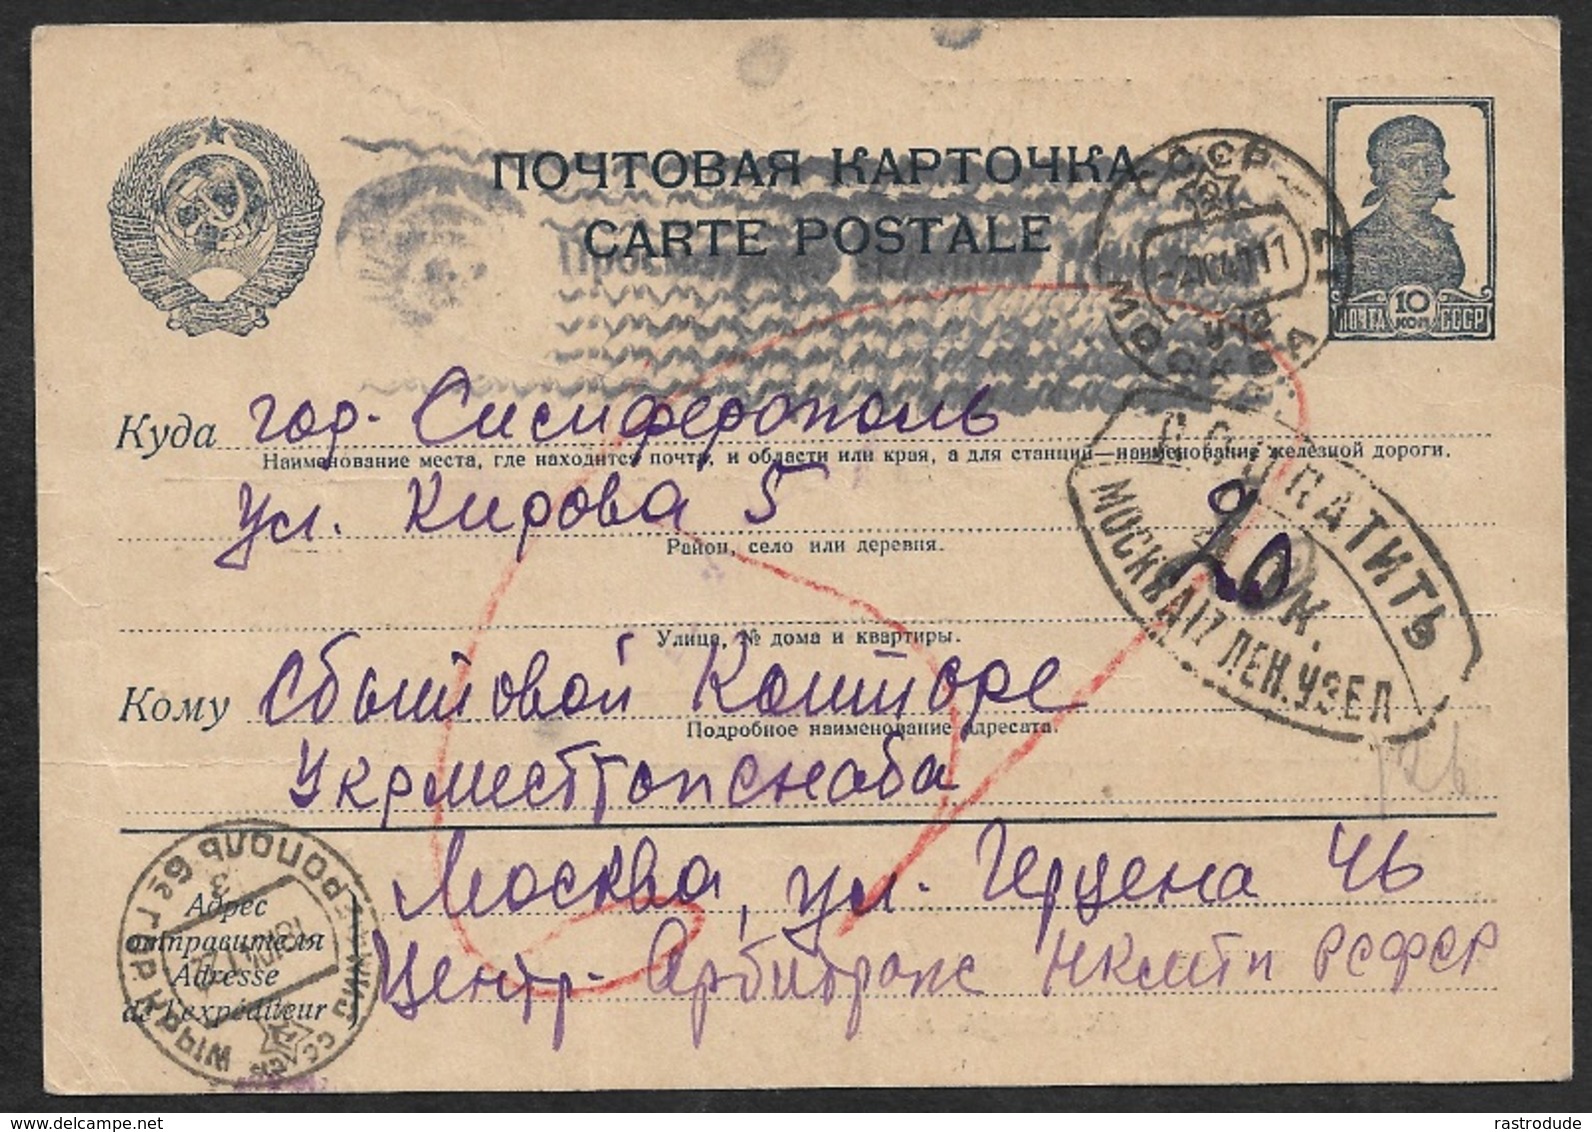 ПОЧТОВАЯ КАРТОЧКА
CARTE POSTALE
СССР
МОСКВА
10
КОП
ПОЧТА СССР
Куда гор. Симферополь
Наименование места, где находится почта, и области или края, а для станций—наименование железной дороги.
ул. Кирова 5
Район, село или деревня.
ДОПЛАТИТЬ
20 К.
МОСКВА 17 ЛЕН. УЗЕЛ
Улица, № дома и квартиры.
Кому Сбытовой Конторе
Подробное наименование адресата.
Укрместтопснаба
Адрес
отправителя
Adresse
de l'expéditeur
Москва, ул. Герцена 46
Центр. Арбитраж НКМТП РСФСР
rastrodude